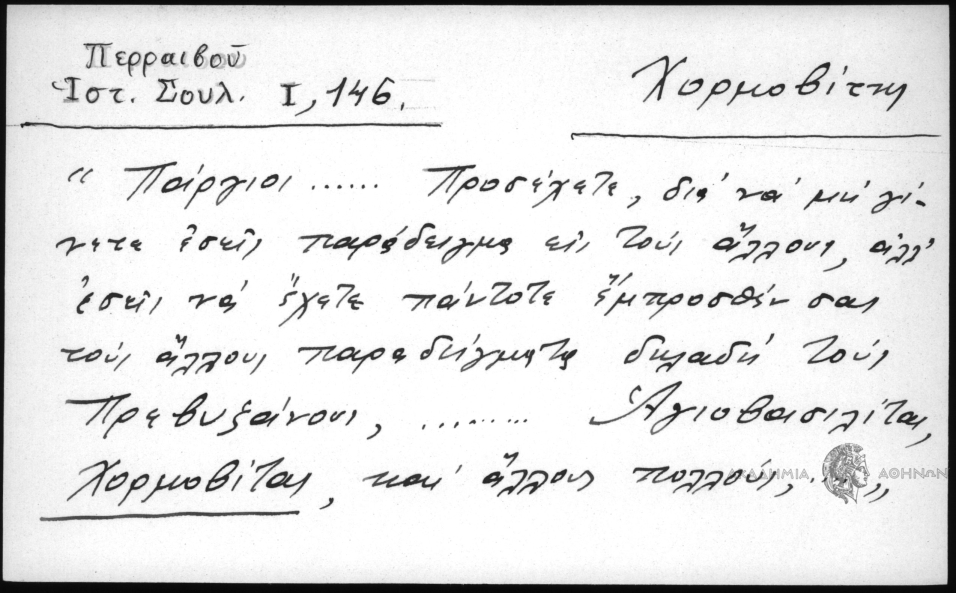 Περραιβοῦ
Ἱστ. Σουλ. I, 146.
Χορμοβίτης
“ Πάργιοι ...... Προσέχετε, διά νά μή γί-
νετε ἐσεῖς παράδειγμα εἰς τούς ἄλλους, ἀλλ'
ἐσεῖς νά ἔχετε πάντοτε ἔμπροσθέν σας
τούς ἄλλους παραδείγματα δηλαδή τούς
Πρεβυζάνους, ......... Ἁγιοβασιλίτας,
Χορμοβίτας, καί ἄλλους πολλούς, ... „
ΑΚΑΔΗΜΙΑ ΑΘΗΝΩΝ